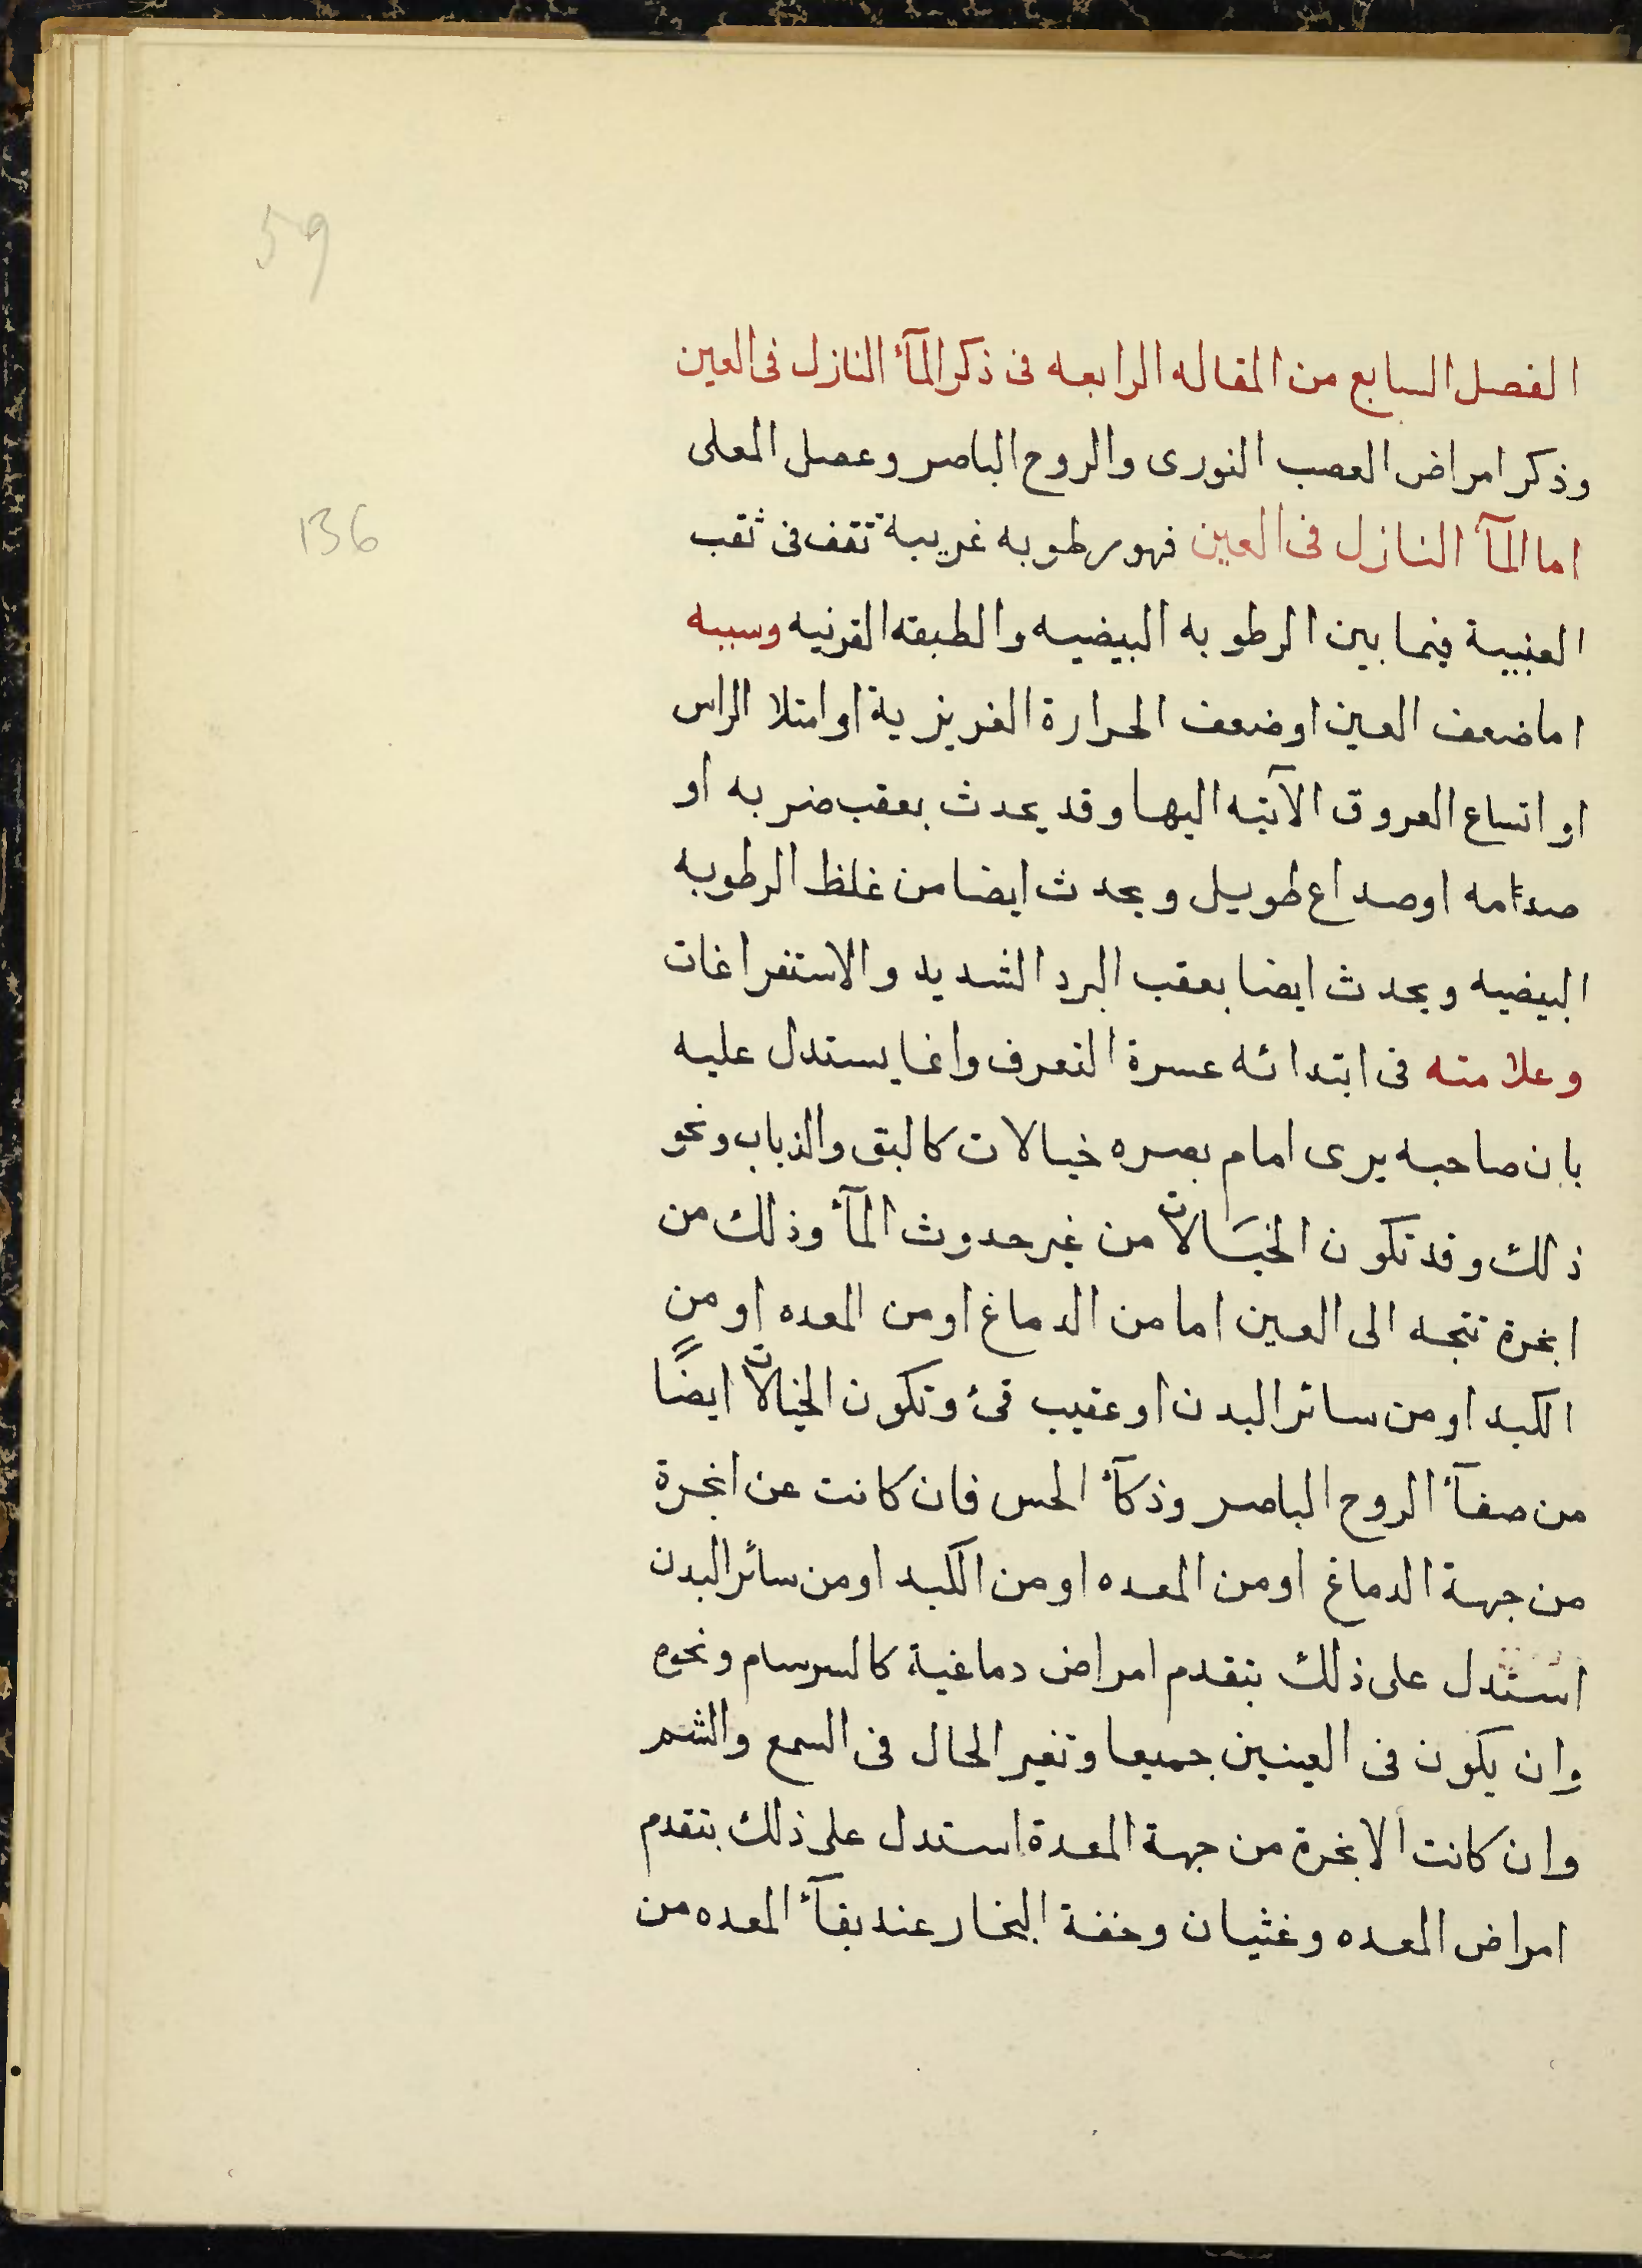 59
الفصل السابع من المقاله الرابعه فى ذكر المآء النازل فى العين
وذكر امراض العصب النورى والروح الباصر وعضل المعلى
136
اما المآ النازل فى العين فهو رطوبه غريبة تقف فى ثقب
العنبية فيما بين الرطوبه البيضيه والطبقه القرنيه وسببه
اما ضعف العين او ضعف الحرارة الغريزية او امتلا الراس
او اتساع العروق الآتيه اليها وقد يحدث بعقب ضربه او
صدامه او صداع طويل ويحدث ايضا من غلظ الرطوبه
البيضيه ويحدث ايضا بعقب البرد الشديد والاستفراغات
وعلامته فى ابتدائه عسرة التعرف وانما يستدل عليه
بان صاحبه يرى امام بصره خيالات كالبق والذباب ونحو
ذلك وقد تكون الخيَالات من غير حدوث المآء وذلك من
ابخرة تتجه الى العين اما من الدماغ او من المعده او من
الكبد او من سائر البدن او عقيب قئ وتكون الخيالات ايضًا
من صفآء الروح الباصر وذكآء الحس فان كانت عن ابخرة
من جهة الدماغ او من المعده او من الكبد او من سائر البدن
استدل على ذلك بتقدم امراض دماغية كالسرسام ونحوه
وان يكون فى العينين جميعا وتغير الحال فى السمع والشم
وان كانت الابخرة من جهة المعدة استدل على ذلك بتقدم
امراض المعده وغثيان وخفة البخار عند بقآء المعده من